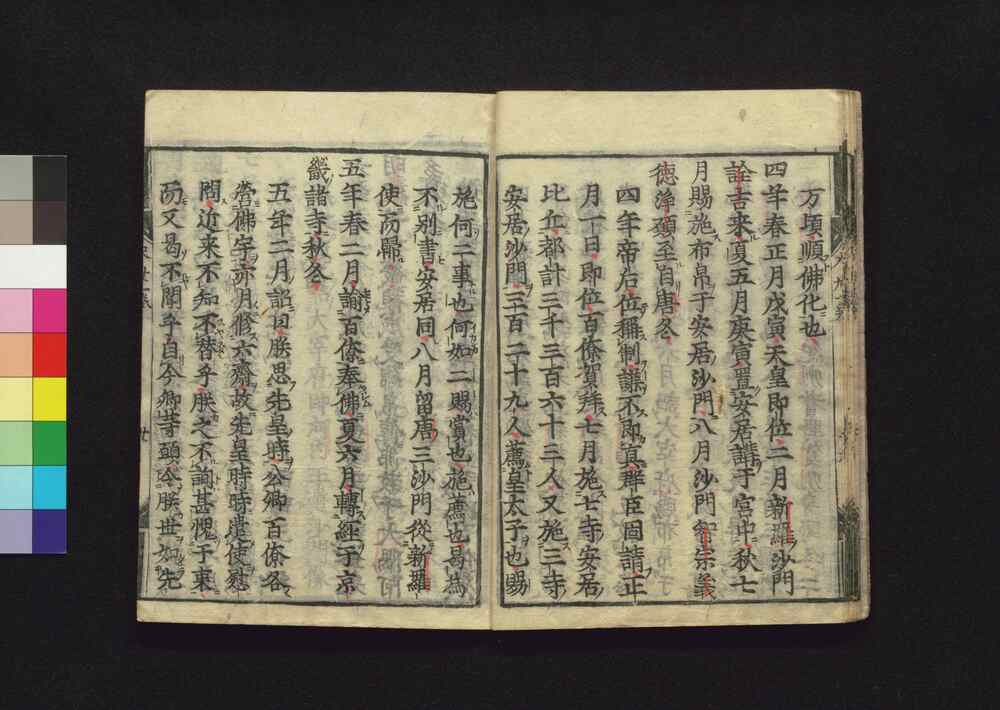 万頃順佛化也
四年春正月戊寅天皇即位二月新羅沙門
詮吉来夏五月庚寅置安居講于宮中秋七
月賜施布帛于安居沙門八月沙門智宗義
徳淨願至自唐冬
四年帝后位稱制誰不即真群臣固請正
月一日即位百僚賀拜七月施七寺安居
比丘都計三千三百六十三人又施三寺
安居沙門三百二十九人薦皇太子也賜
施何二事也何如二賜賞也施薦也曷為
不別書安居同八月留唐三沙門從新羅
使而歸
五年春二月諭百僚奉佛夏六月轉經于京
畿諸寺秋冬
五年二月詔曰朕思先皇時公卿百僚各
營佛宇亦月修六齋故先皇時時遣使慰
問近来不知不替乎朕之不詢甚愧于衷
而又曷不聞乎自今卿等頭公朕世如先